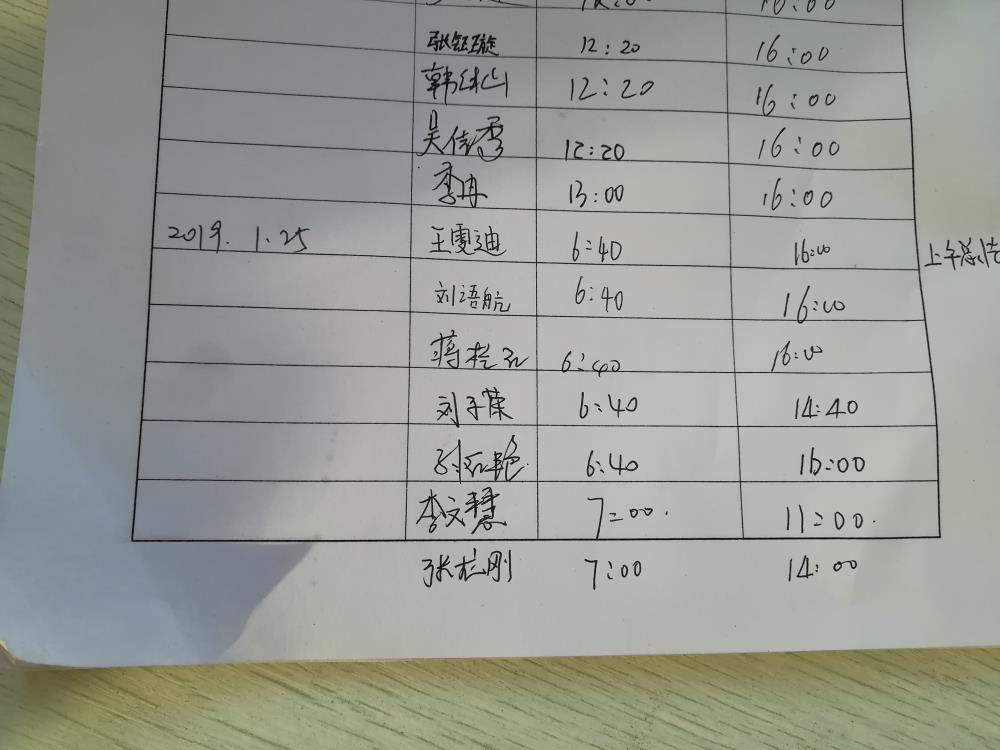 16:00
张钰璇 12:20 16:00
韩 山 12:20 16:00
吴佳雪 12:20 16:00
李冉 13:00 16:00
2019. 1.25 王雯迪 6:40 16:00 上午
刘语航 6:40 16:00
蒋 6:40 16:00
刘子荣 6:40 14:40
红艳 6:40 16:00
李文慧 7:00. 11:00.
张 刚 7:00 14:00